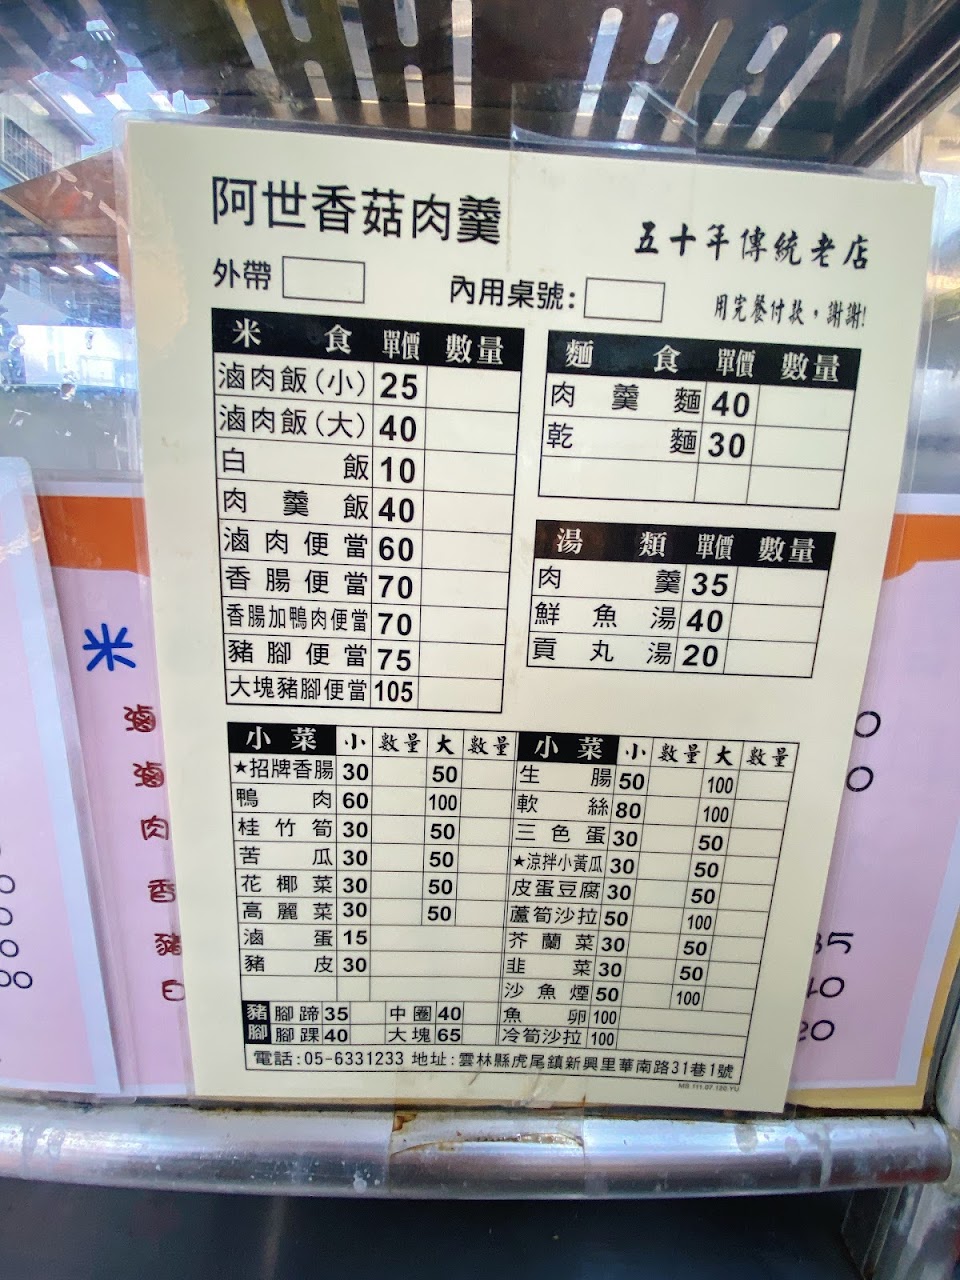 阿世香菇肉羹
五十年傳統老店
外帶
內用桌號:
用完餐付款，謝謝!
米食 單價 數量
滷肉飯(小) 25
滷肉飯(大) 40
白飯 10
肉羹飯 40
滷肉便當 60
香腸便當 70
香腸加鴨肉便當 70
豬腳便當 75
大塊豬腳便當 105
麵食 單價 數量
肉羹麵 40
乾麵 30
湯類 單價 數量
肉羹 35
鮮魚湯 40
貢丸湯 20
小菜 小 數量 大 數量
★招牌香腸 30 50
鴨肉 60 100
桂竹筍 30 50
苦瓜 30 50
花椰菜 30 50
高麗菜 30 50
滷蛋 15
豬皮 30
小菜 小 數量 大 數量
生腸 50 100
軟絲 80 100
三色蛋 30 50
★涼拌小黃瓜 30 50
皮蛋豆腐 30 50
蘆筍沙拉 50 100
芥蘭菜 30 50
韭菜 30 50
沙魚煙 50 100
魚卵 100
冷筍沙拉 100
豬腳
腳蹄 35 中圈 40
腳踝 40 大塊 65
電話:05-6331233 地址:雲林縣虎尾鎮新興里華南路31巷1號
米
滷
滷
肉
香
豬
白